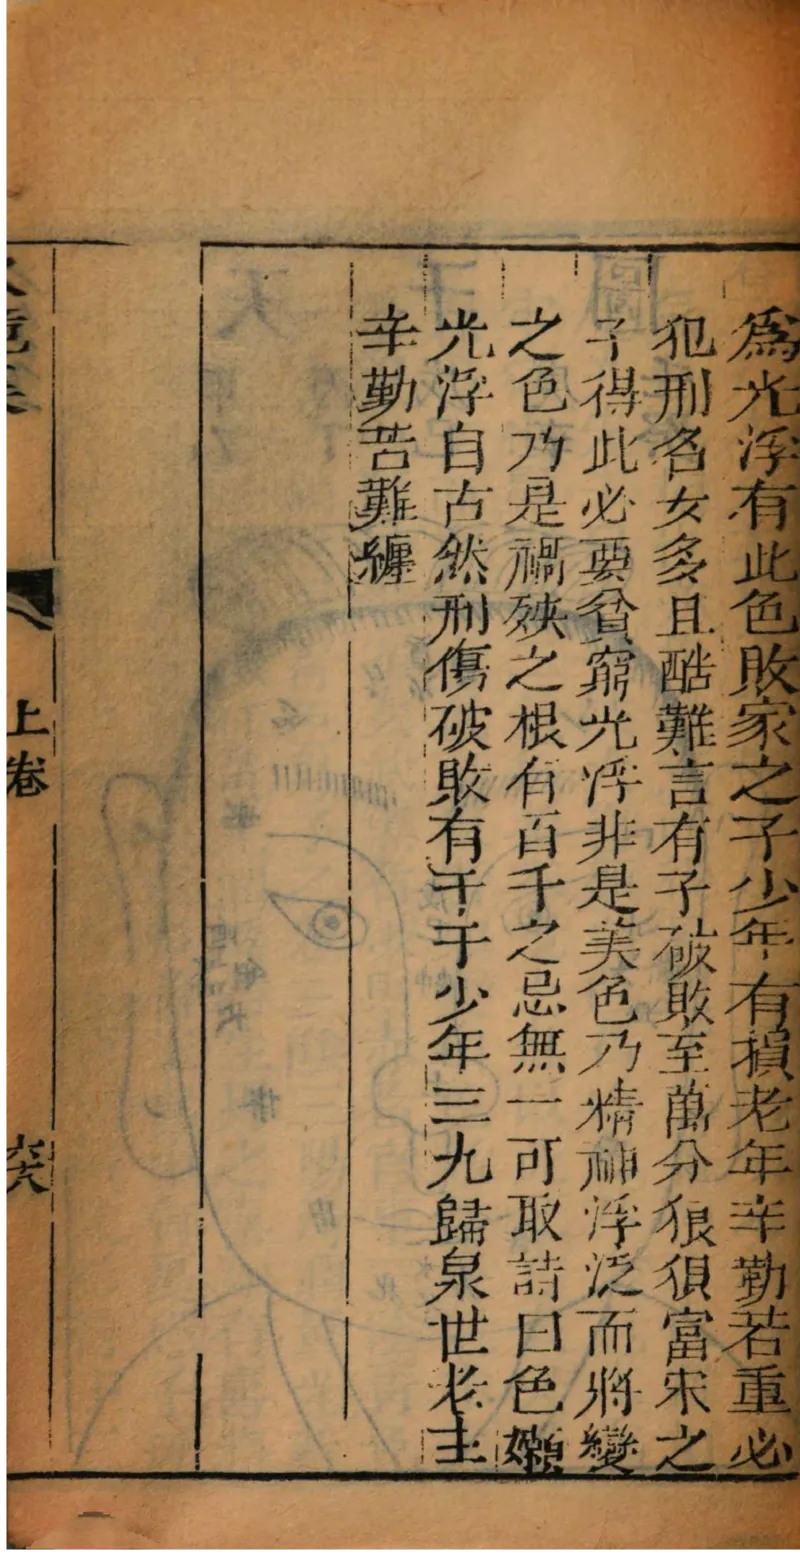 為光浮有此色敗家之子少年有損老年辛勤若重必
犯刑名女多且酷難言有子破敗至萬分狼狽富宋之
子得此必要貧窮光浮非是美色乃精神浮泛而將變
之色乃是禍殃之根有百千之忌無一可取詩曰色嫰
光浮自古然刑傷破敗有千千少年三九歸泉世老主
辛勤苦難纏
上卷